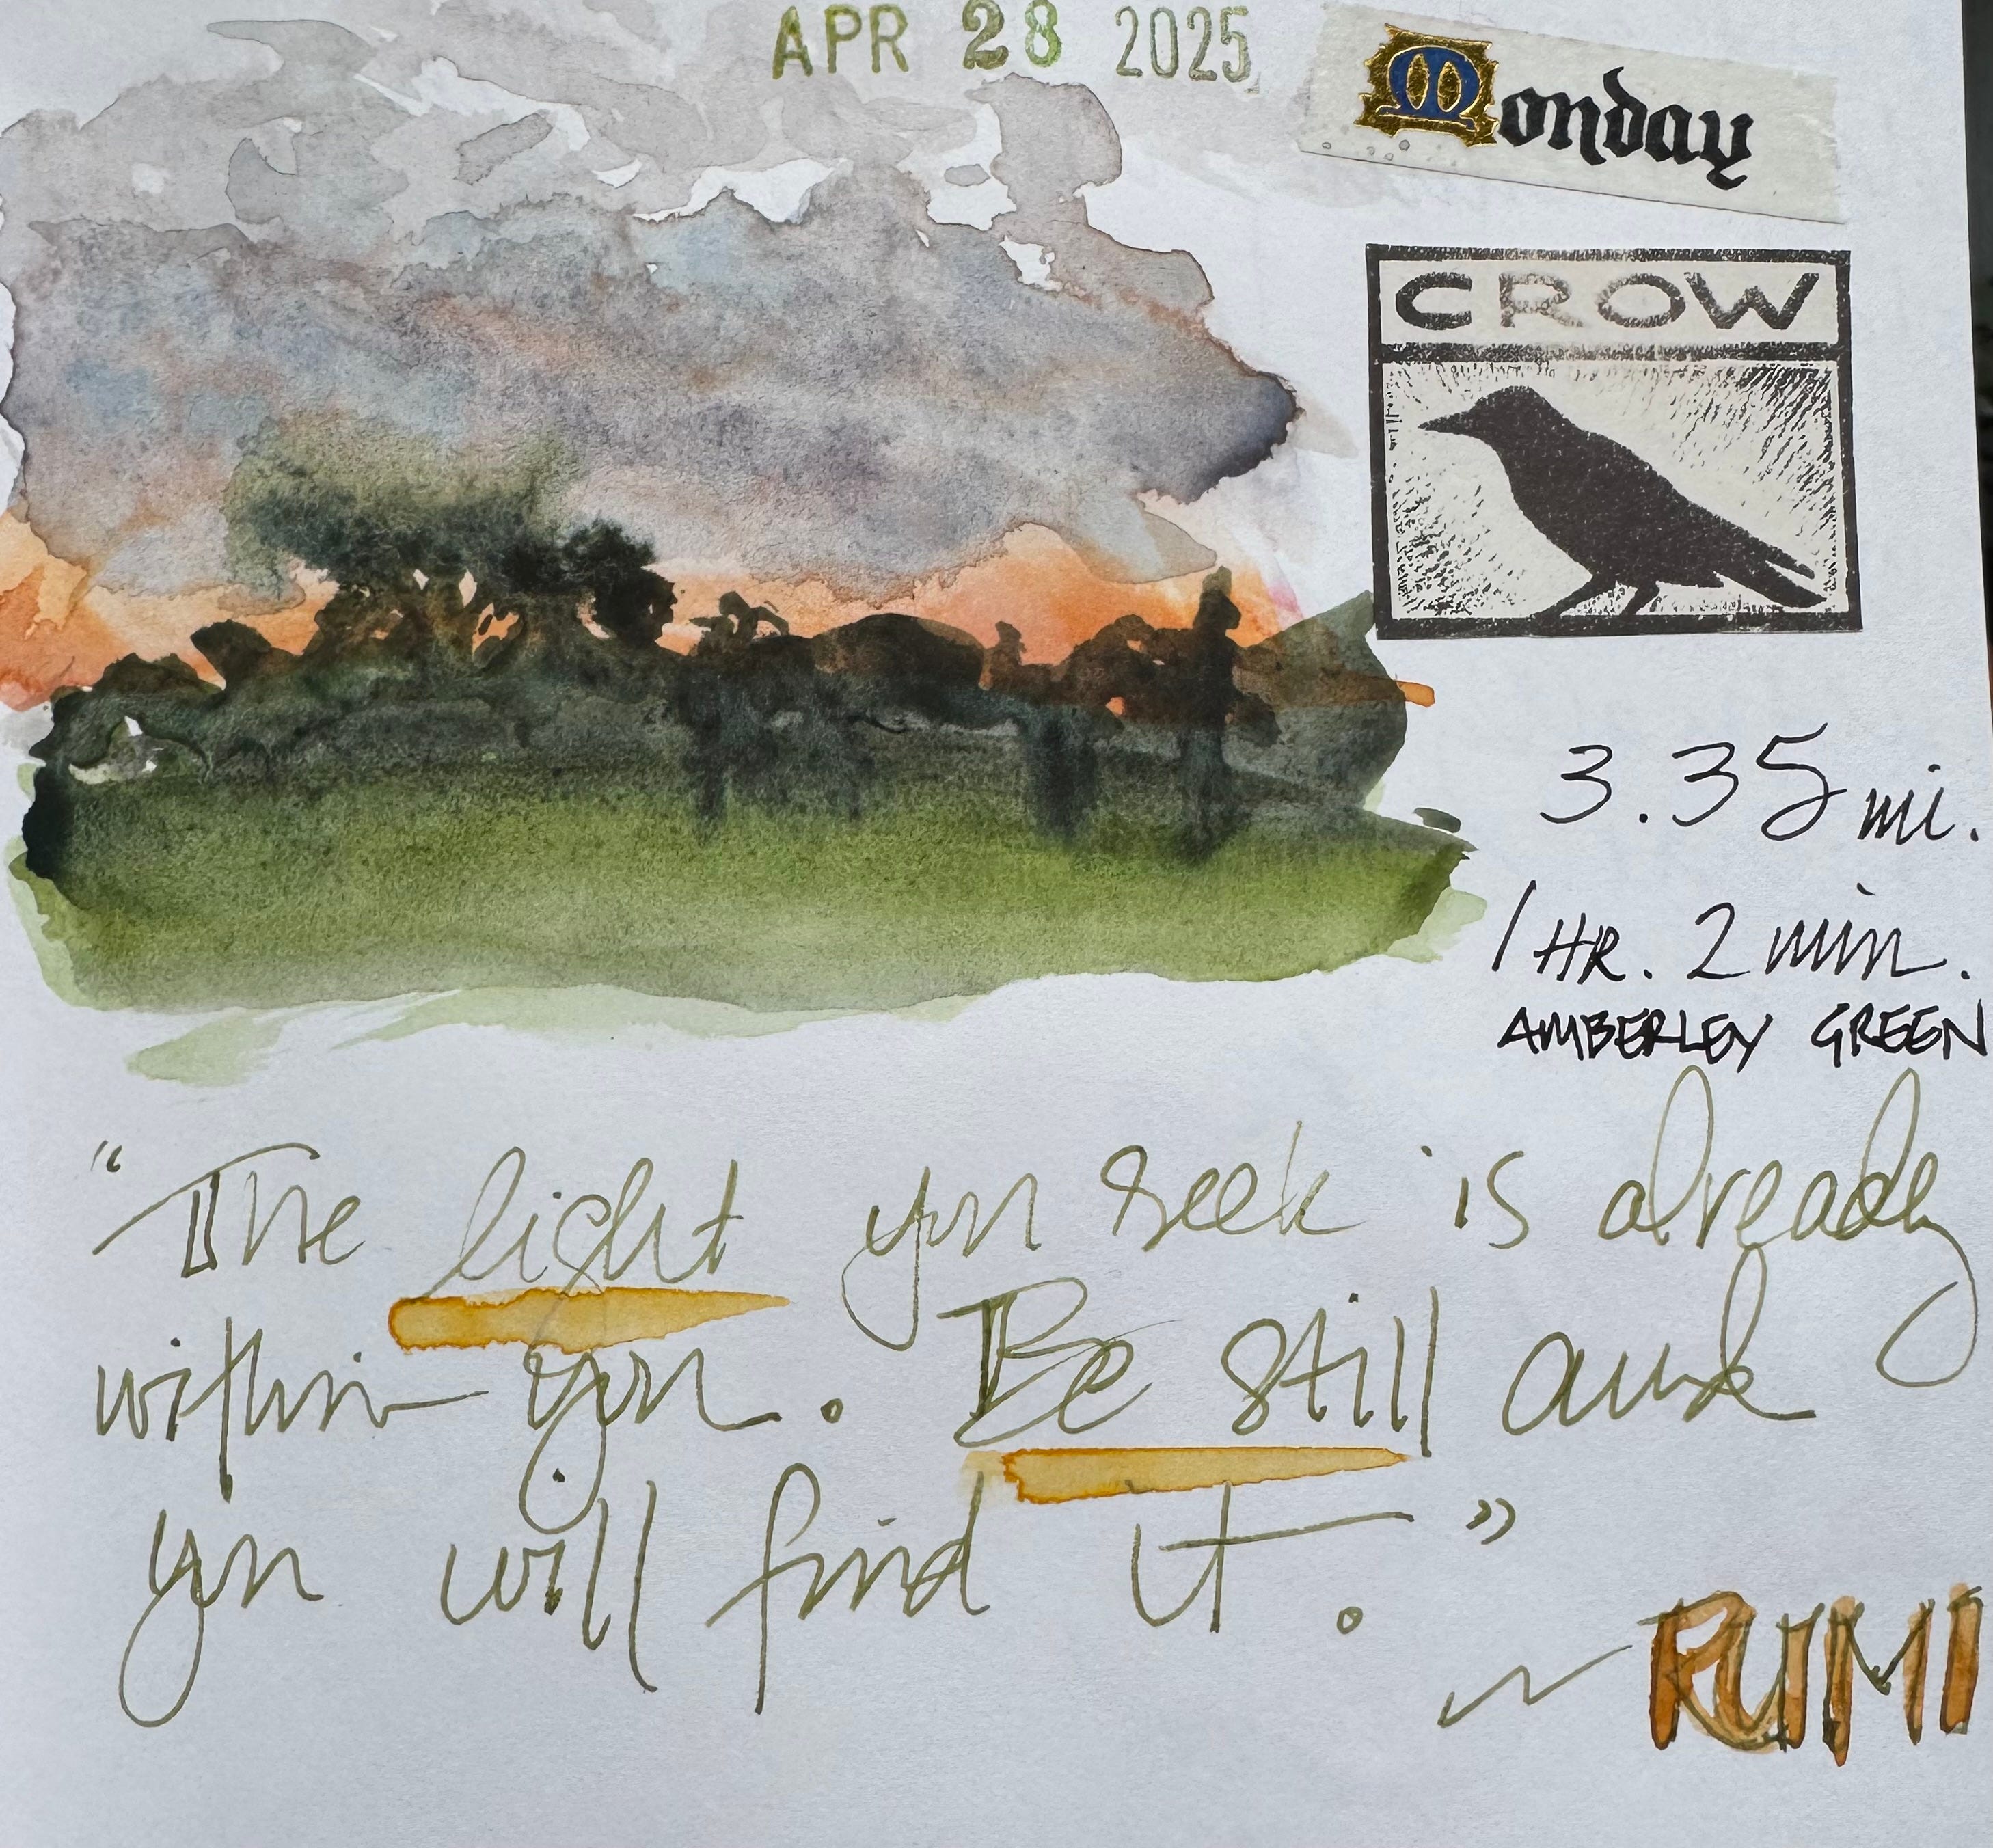 APR 28 2025
Monday
CROW
3.35 mi.
1 HR. 2 min.
AMBERLEY GREEN
"The light you seek is already
within you. Be still and
you will find it."
~ RUMI